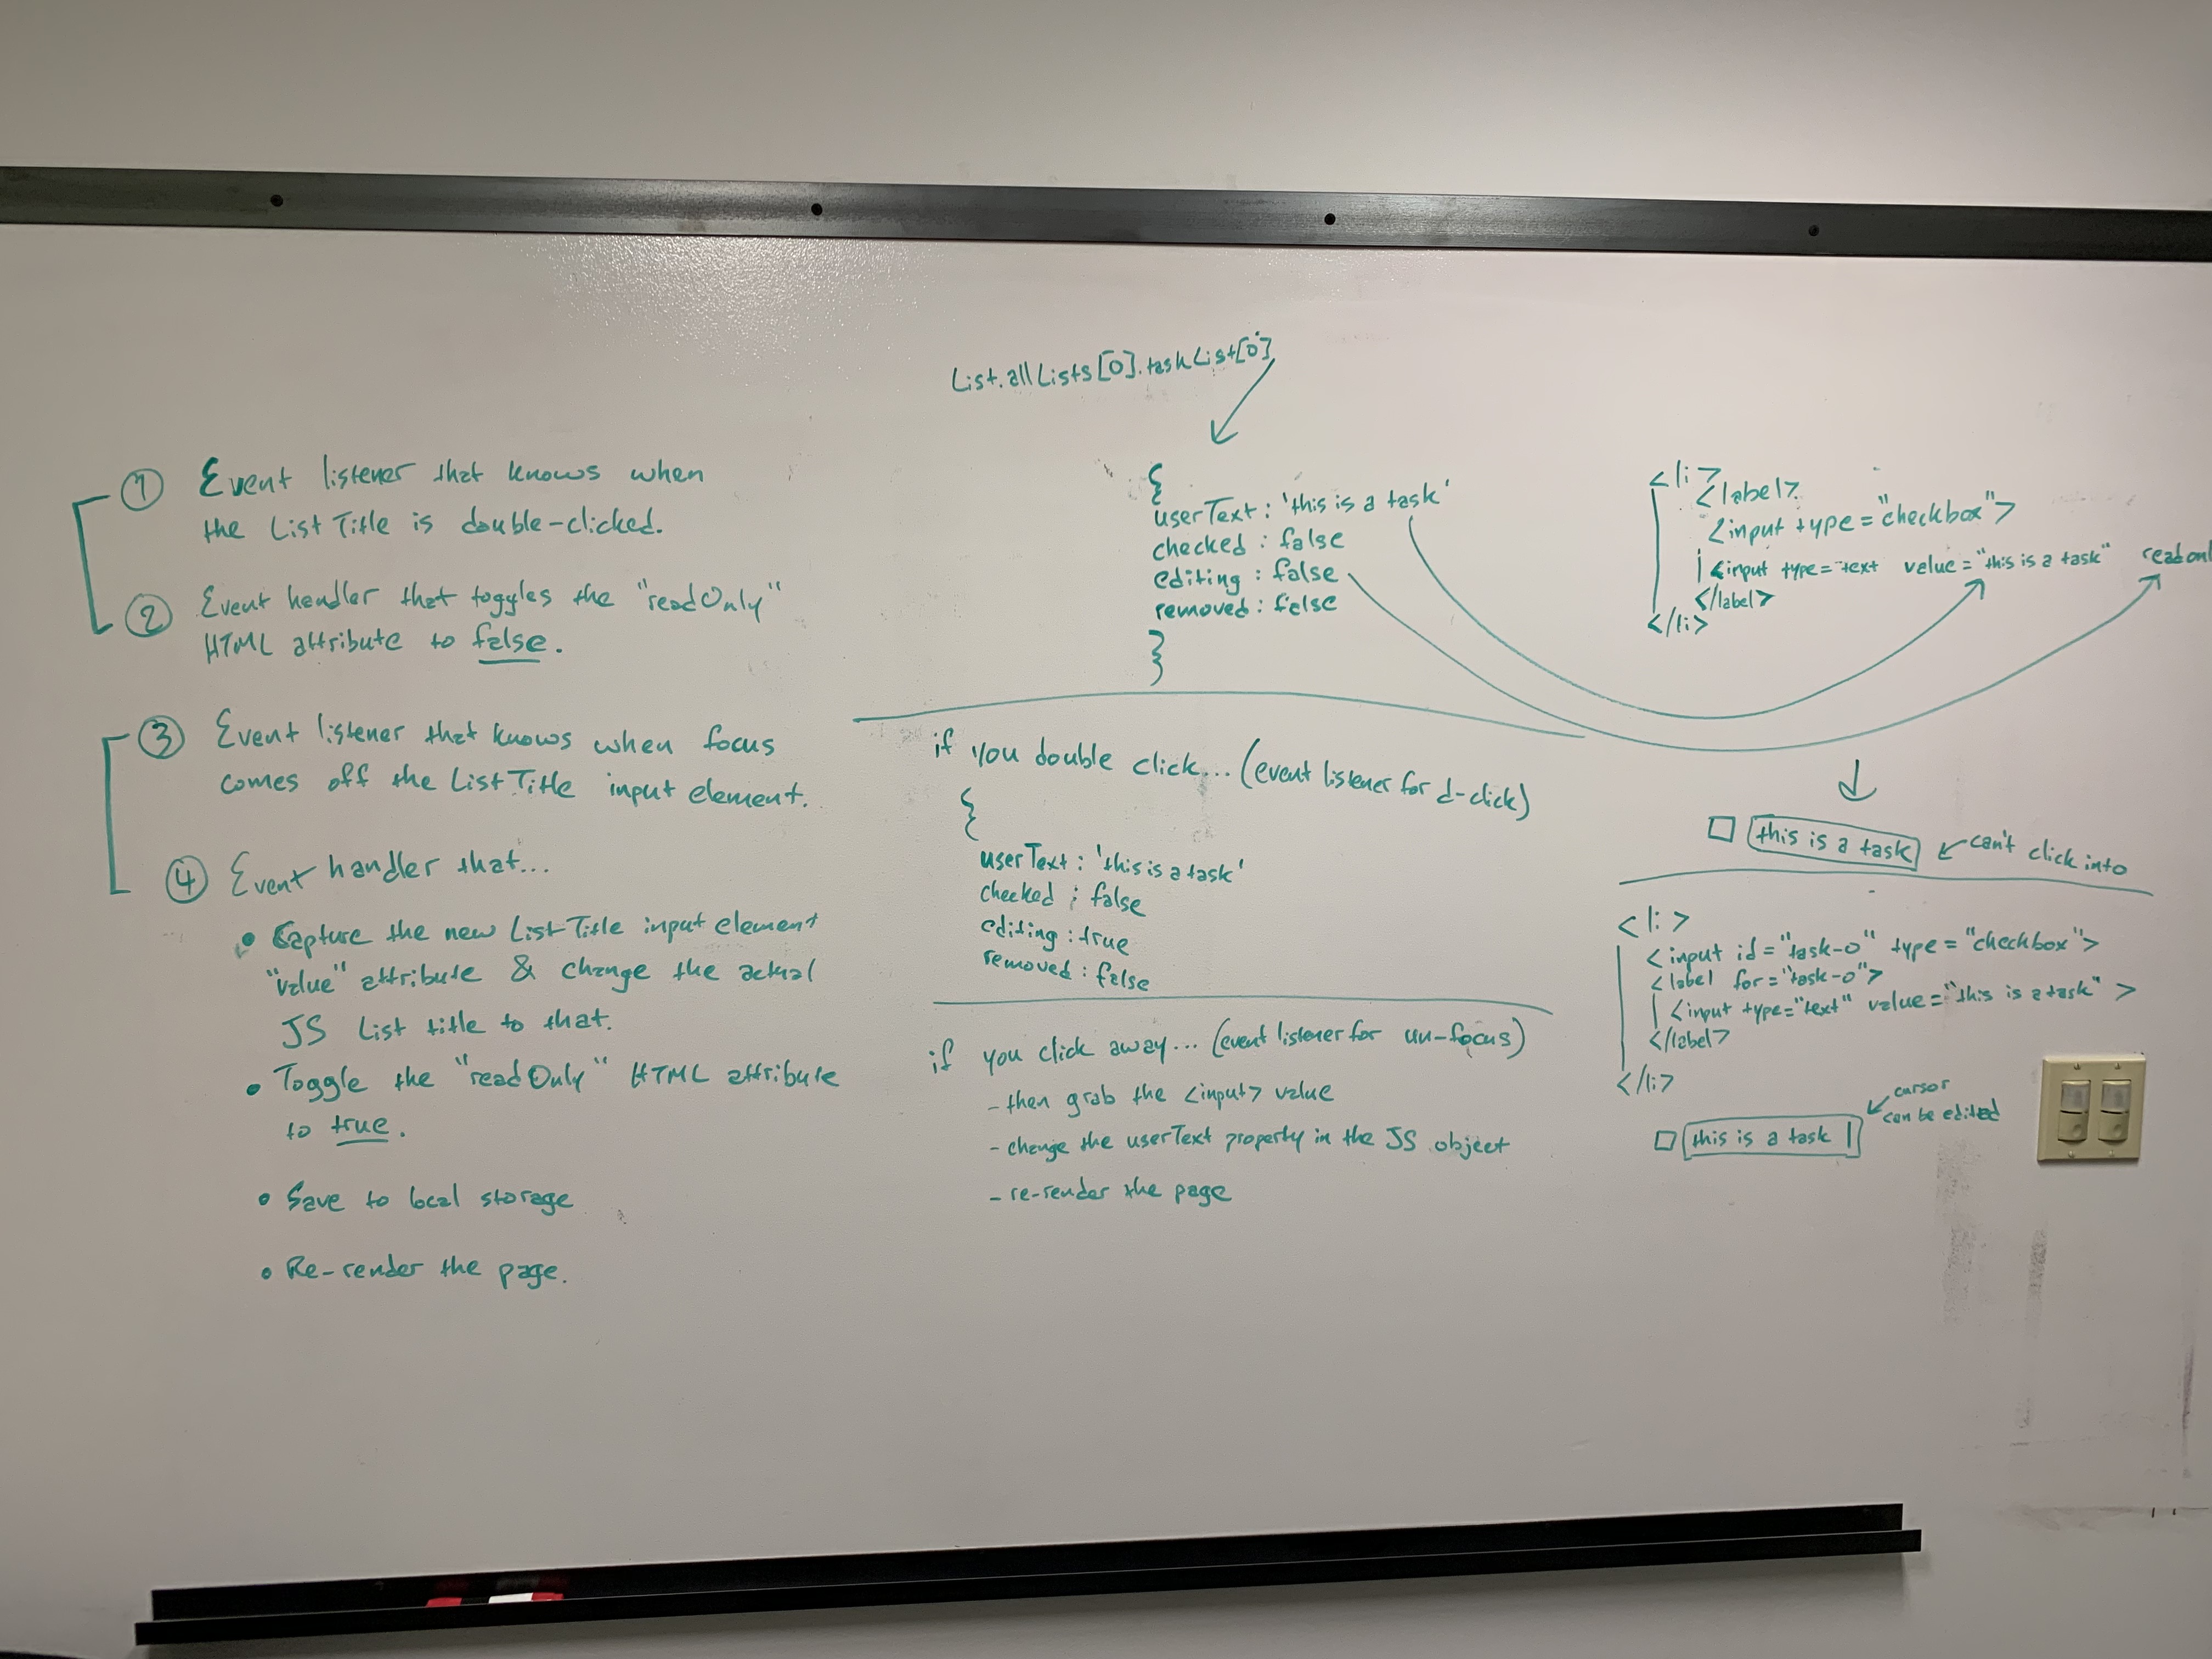 ① Event listener that knows when
the List Title is double-clicked.
② Event handler that toggles the "readOnly"
HTML attribute to false.
③ Event listener that knows when focus
comes off the List Title input element.
④ Event handler that...
• Capture the new List Title input element
"value" attribute & change the actual
JS List title to that.
• Toggle the "readOnly" HTML attribute
to true.
• Save to local storage
• Re-render the page.
List.allLists[0].taskList[0]
{
userText: 'this is a task'
checked: false
editing: false
removed: false
}
if you double click... (event listener for d-click)
{
userText: 'this is a task'
checked: false
editing: true
removed: false
if you click away... (event listener for un-focus)
- then grab the <input> value
- change the userText property in the JS object
- re-render the page
<li>
<label>
<input type="checkbox">
<input type="text value="this is a task" readonl
</label>
</li>
this is a task can't click into
<li>
<input id="task-0" type="checkbox">
<label for="task-0">
<input type="text" value="this is a task">
</label>
</li>
cursor
can be edited
this is a task |